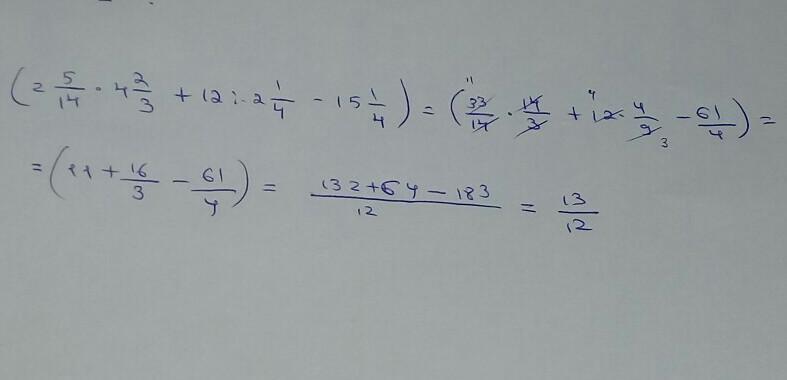 (2 5/14 · 4 2/3 + 12 : 2 1/4 - 15 1/4) = (33/14 · 14/3 + 12 · 4/9 - 61/4) =
= (11 + 16/3 - 61/4) = (132+64-183)/12 = 13/12